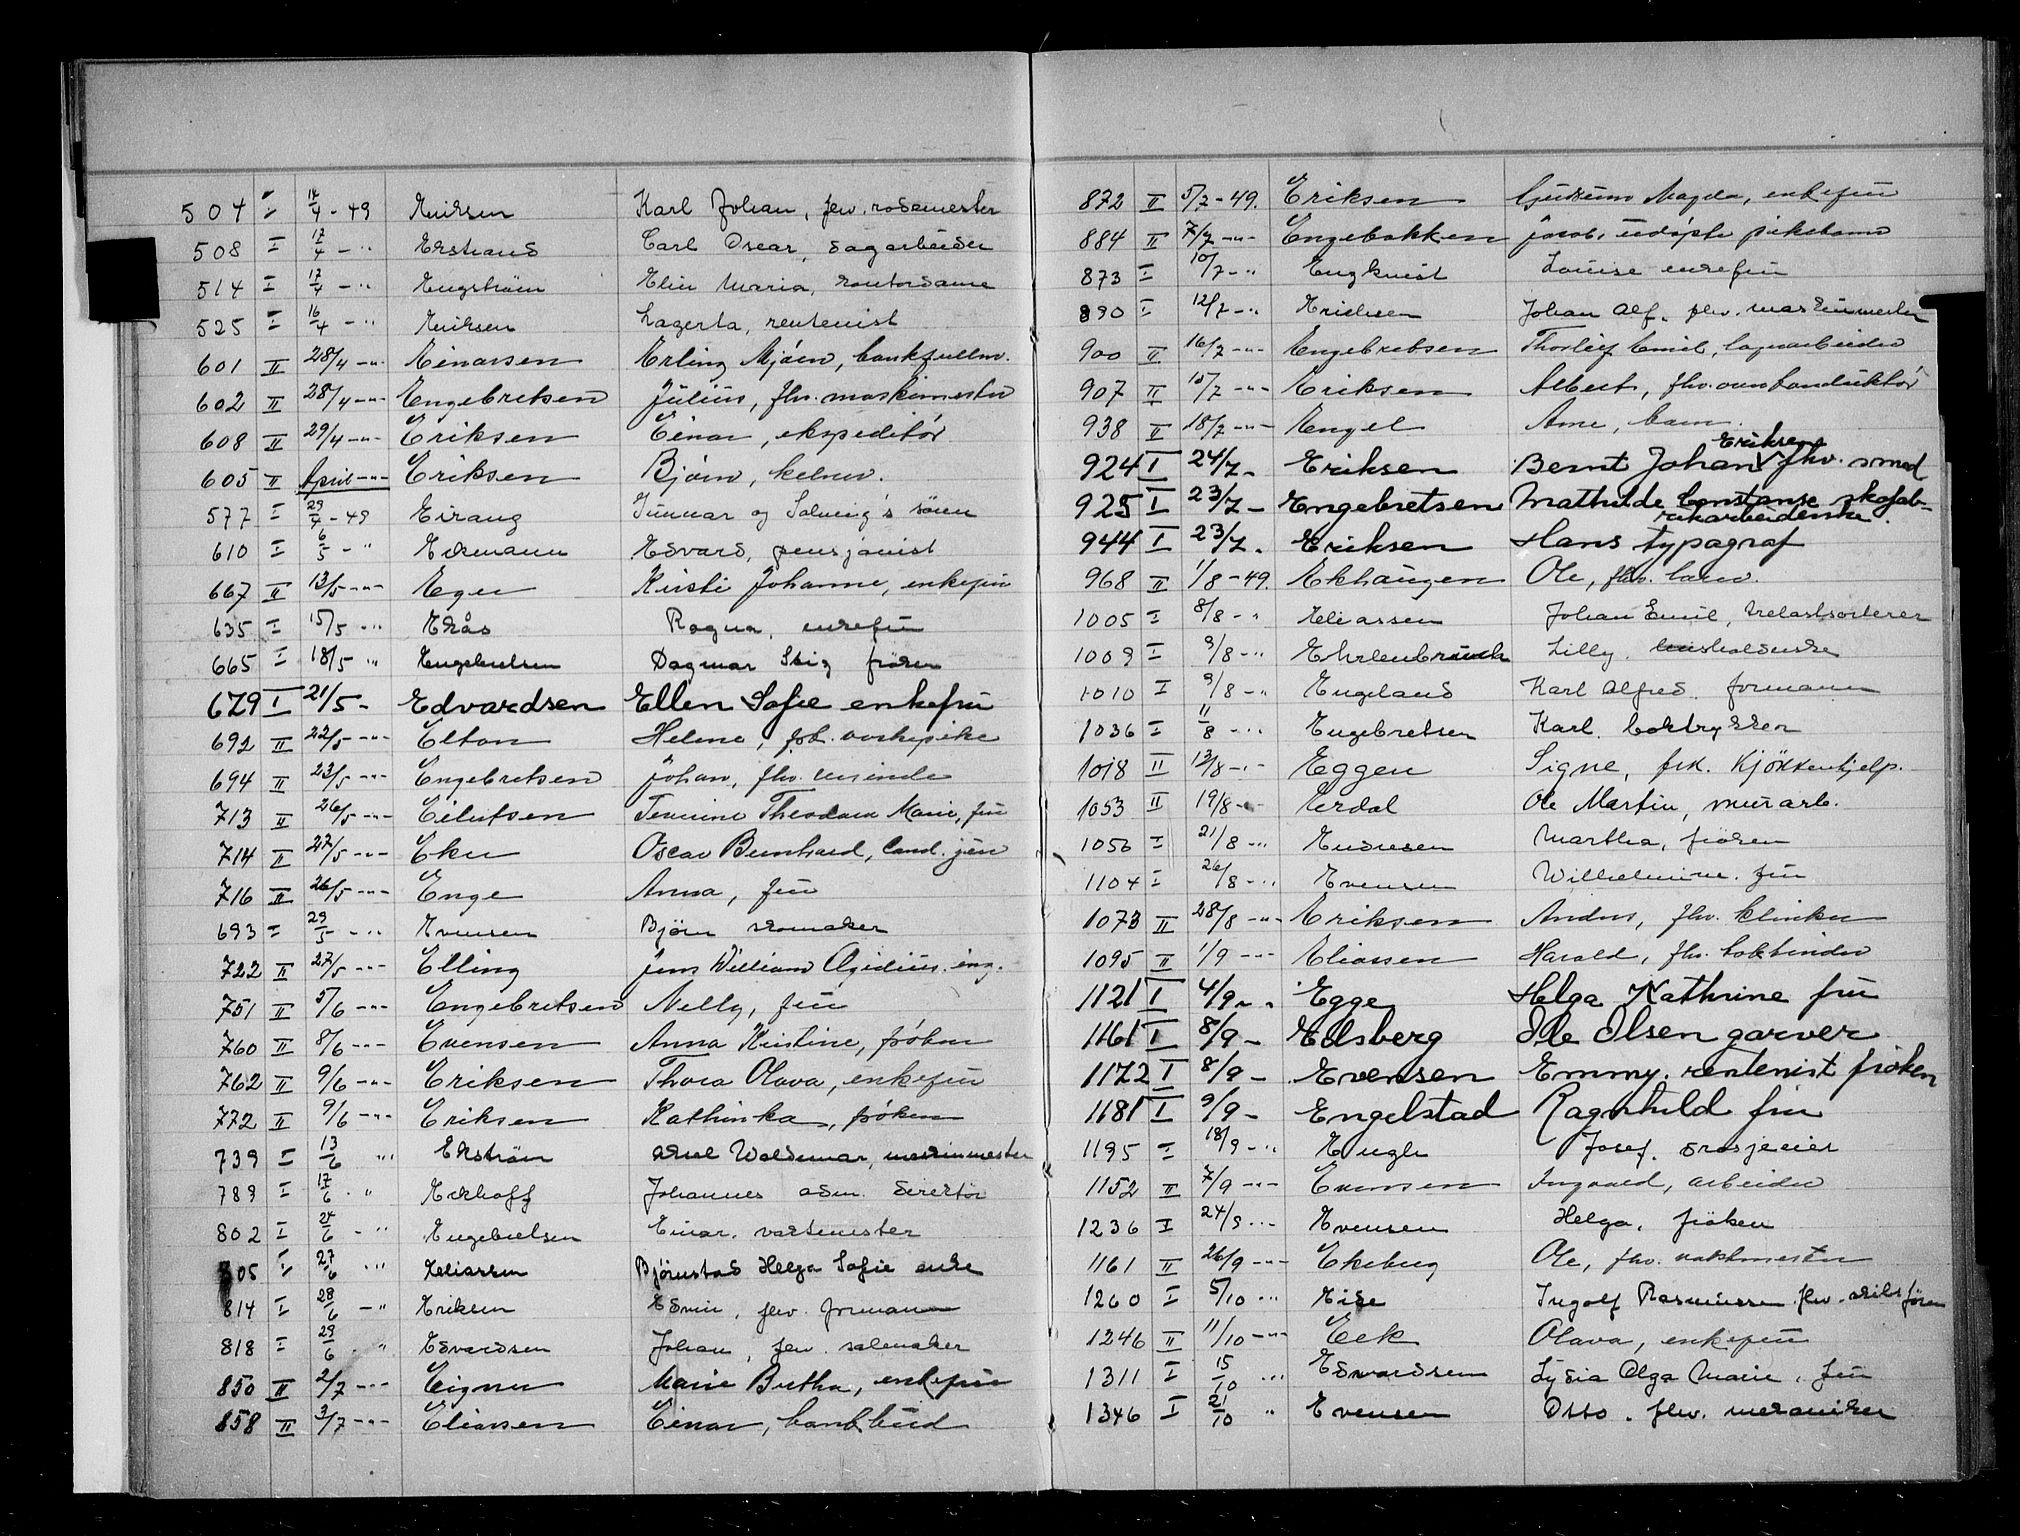 504 I 14/4 - 49 Eriksen Karl Johan, fhv. rodemester
508 I 12/4 - " Ekstrand Carl Oscar, sagarbeider
514 I 12/4 - " Engström Elin Maria, kontordame
525 I 16/4 - " Eriksen Lagerta, rentenist
601 II 28/4 -"- Einarsen Erling Mjöen, bankfullm.
602 II 28/4 -"- Engebretsen Julius, fhv. maskinmester
608 II 29/4 -"- Eriksen Einar, ekspeditör
605 II April -"- Eriksen Björn, kelner.
577 I 29/4 - 49 Eirang Gunnar og Solveig's sönn
610 I 6/5 - " Eckmann Edvard, pensjonist
667 II 13/5 -"- Eger Kirsti Johanne, enkefru
635 I 15/5 - " Ekås Ragna, enkefru
665 I 18/5 " Engebretsen Dagmar Stig fröken
679 I 21/5 - Edvardsen Ellen Sofie enkefru
692 II 22/5 -"- Elton Helene, fhv. vaskepike
694 II 23/5 -"- Engebretsen Johan, fhv.
713 II 26/5 -"- Eilertsen Theodora Marie, fru
714 II 27/5 -"- Eker Oscar Bernhard, cand. jur
716 II 26/5 -"- Enge Anna, fru
693 I 29/5 - " Evensen Björn skomaker
722 II 27/5 -"- Elling Jens William Ægidius. ing.
751 II 5/6 -"- Engebretsen Nelly, fru
760 II 8/6 -"- Evensen Anna Kristine, fröken
762 II 9/6 -"- Eriksen Thora Olava, enkefru
772 II 9/6 -"- Eriksen Kathinka, fröken
739 I 13/6 " Ekström Axel Waldemar, maskinmester
789 I 17/6 - " Eckhoff Johannes adm. direktör
802 I 24/6 - " Engebretsen Einar. vaktmester
805 I 27/6 " Eliassen Björnstad Helga Sofie enke
814 I 28/6 - " Eriksen Edvin, fhv. formann
818 I 29/6 - " Edvardsen Johan, fhv. salmaker
850 II 2/7 -"- Eigner Marie Bertha, enkefru
858 II 3/7 -"- Eliassen Einar, bankbud
872 II 5/7 - 49. Eriksen Gudrun Magda, enkefru
884 II 7/7 -"- Engebakken Jacobs udöpte pikebarn
873 I 10/7 - " Engkvist Louise enkefru
890 I 12/7 - " Erichsen Johan Alf. fhv. maskinmester
900 II 16/7 -"- Engebretsen Thorleif Emil, lagerarbeider
907 II 15/7 -"- Eriksen Albert, fhv. overkonduktör
938 II 18/7 -"- Engel Arne, barn.
Eriksen
924 I 24/7 - Eriksen Bernt Johan V fhv. smed
925 I 23/7 - Engebretsen Mathilde Constanse skofab-
rikarbeiderske.
944 I 23/7 - Eriksen Hans typograf
968 II 1/8 - 49. Ekhaugen Ole, fhv.
1005 I 8/8 - " Eliassen Johan Emil, trelastsorterer
1009 I 9/8 - " Ehrlenbruch Lilly. husholderske
1010 I 9/8 - " Engeland Karl Alfred. formann
1036 I 11/8 - " Engebretsen Karl. boktrykker
1018 II 13/8 -"- Eggen Signe, frk. Kjökkenhjelp.
1053 II 19/8 -"- Eerdal Ole Martin, murarb.
1056 I 21/8 - " Endresen Martha, fröken
1104 I 26/8 - " Evensen Wilhelmine. fru
1073 II 28/8 -"- Eriksen Anders, fhv. klinker
1095 II 1/9 -"- Eliassen Harald, fhv. bokbinder
1121 I 4/9 - " Egge Helga Kathrine fru
1161 I 8/9 - Edsberg Ole Olsen garver
1172 I 8/9 - Evensen Emmy. rentenist fröken
1181 I 9/9 - Engelstad Ragnhild fru
1195 I 18/9 - " Engh Josef. drosjeeier
1152 II 7/9 -"- Evensen Ingvald, arbeider
1236 I 24/9 - " Evensen Helga, fröken
1161 II 26/9 -"- Ekeberg Ole, fhv. vaktmester
1260 I 5/10 - " Eide Ingolf Rasmussen fhv. skibsförer
1246 II 11/10 -"- Eek Olava, enkefru
1311 I 15/10 " Edvardsen Lydia Olga Marie, fru
1346 I 21/10 " Evensen Otto. fhv. mekaniker